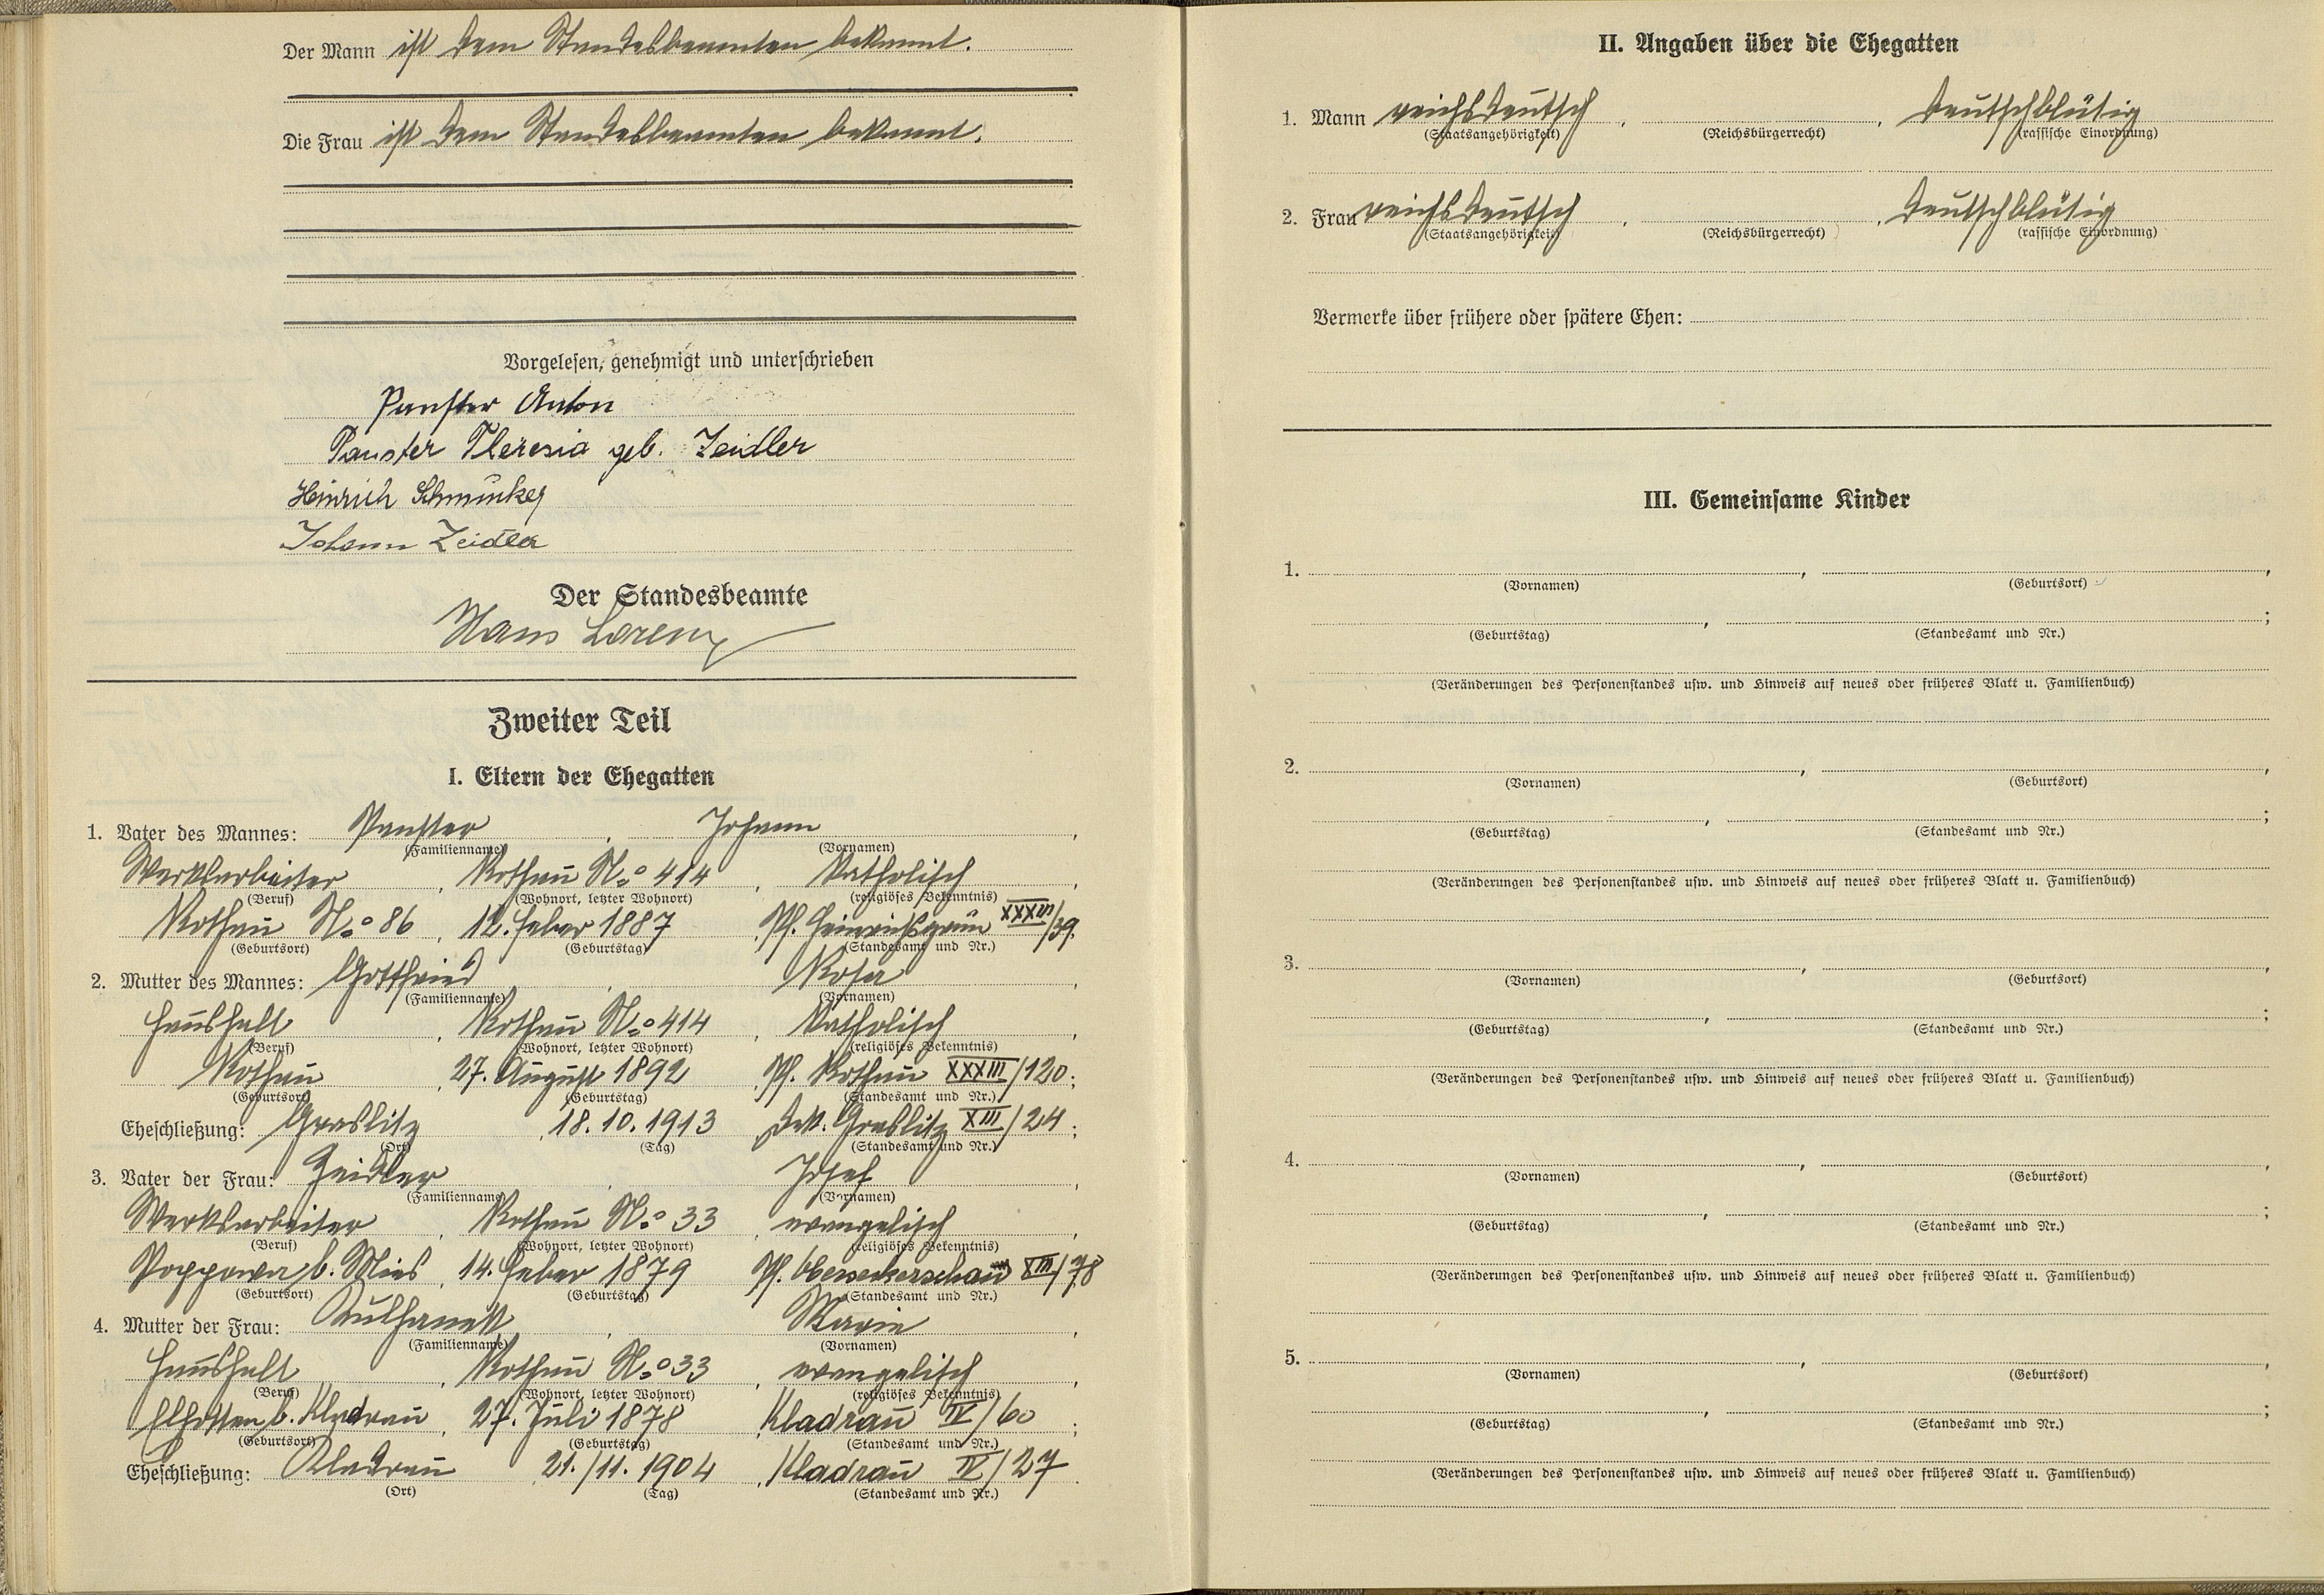 Der Mann ist dem Standesbeamten bekannt.
Die Frau ist dem Standesbeamten bekannt.
Vorgelesen, genehmigt und unterschrieben
Panster Anton
Panster Theresia geb. Zeidler
Heinrich
Johann Zeidler
Der Standesbeamte
Hans Lorenz
Zweiter Teil
I. Eltern der Ehegatten
1. Vater des Mannes: Panster, Johann,
(Familienname) (Vornamen)
Werksarbeiter, Rothau No 414, katholisch,
(Beruf) (Wohnort, letzter Wohnort) (religiöses Bekenntnis)
Rothau No 86, 12. Feber 1887, Pf. Heinrichsgrün XXXIII/39.
(Geburtsort) (Geburtstag) (Standesamt und Nr.)
2. Mutter des Mannes: Gottfried, Rosa,
(Familienname) (Vornamen)
Haushalt, Rothau No 414, katholisch,
(Beruf) (Wohnort, letzter Wohnort) (religiöses Bekenntnis)
Rothau, 27. August 1892, Pf. Rothau XXXIII/120;
(Geburtsort) (Geburtstag) (Standesamt und Nr.)
Eheschließung: Graslitz, 18. 10. 1913, Dek. Graslitz XIII/24;
(Ort) (Tag) (Standesamt und Nr.)
3. Vater der Frau: Zeidler, Josef,
(Familienname) (Vornamen)
Werksarbeiter, Rothau No 33, evangelisch,
(Beruf) (Wohnort, letzter Wohnort) (religiöses Bekenntnis)
Poppowa b. Mies, 14. Feber 1879, Pf. XIII/78
(Geburtsort) (Geburtstag) (Standesamt und Nr.)
4. Mutter der Frau: Kulhanek, Marie,
(Familienname) (Vornamen)
Haushalt, Rothau No 33, evangelisch,
(Beruf) (Wohnort, letzter Wohnort) (religiöses Bekenntnis)
Elhotten b. Kladrau, 27. Juli 1878, Kladrau IV/60;
(Geburtsort) (Geburtstag) (Standesamt und Nr.)
Eheschließung: Kladrau, 21./11. 1904, Kladrau IV/27.
(Ort) (Tag) (Standesamt und Nr.)
II. Angaben über die Ehegatten
1. Mann reichsdeutsch, , deutschblütig
(Staatsangehörigkeit) (Reichsbürgerrecht) (rassische Einordnung)
2. Frau reichsdeutsch, , deutschblütig
(Staatsangehörigkeit) (Reichsbürgerrecht) (rassische Einordnung)
Vermerke über frühere oder spätere Ehen:
III. Gemeinsame Kinder
1. , ,
(Vornamen) (Geburtsort)
, ;
(Geburtstag) (Standesamt und Nr.)
(Veränderungen des Personenstandes usw. und Hinweis auf neues oder früheres Blatt u. Familienbuch)
2. , ,
(Vornamen) (Geburtsort)
, ;
(Geburtstag) (Standesamt und Nr.)
(Veränderungen des Personenstandes usw. und Hinweis auf neues oder früheres Blatt u. Familienbuch)
3. , ,
(Vornamen) (Geburtsort)
, ;
(Geburtstag) (Standesamt und Nr.)
(Veränderungen des Personenstandes usw. und Hinweis auf neues oder früheres Blatt u. Familienbuch)
4. , ,
(Vornamen) (Geburtsort)
, ;
(Geburtstag) (Standesamt und Nr.)
(Veränderungen des Personenstandes usw. und Hinweis auf neues oder früheres Blatt u. Familienbuch)
5. , ,
(Vornamen) (Geburtsort)
, ;
(Geburtstag) (Standesamt und Nr.)
(Veränderungen des Personenstandes usw. und Hinweis auf neues oder früheres Blatt u. Familienbuch)